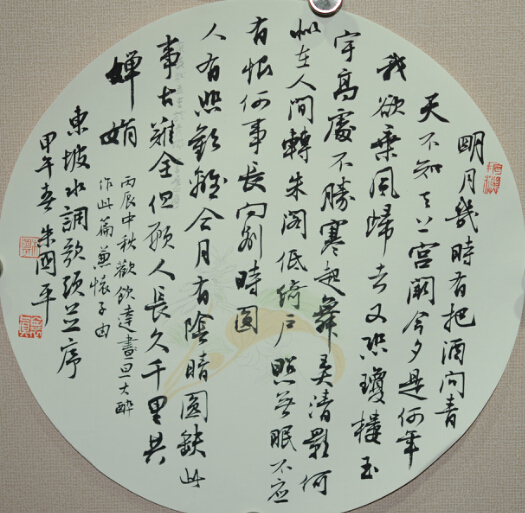 明月幾時有把酒問青
天不知天上宮闕今夕是何年
我欲乘風歸去又恐瓊樓玉
宇高處不勝寒起舞弄清影何
似在人間轉朱閣低綺戶照无眠不应
有恨何事長向别時圓
人有悲歡離合月有陰晴圓缺此
事古難全但願人長久千里共
嬋娟
丙辰中秋歡飲達旦大醉
作此篇兼懷子由
東坡水調歌頭並序
甲午春朱國平